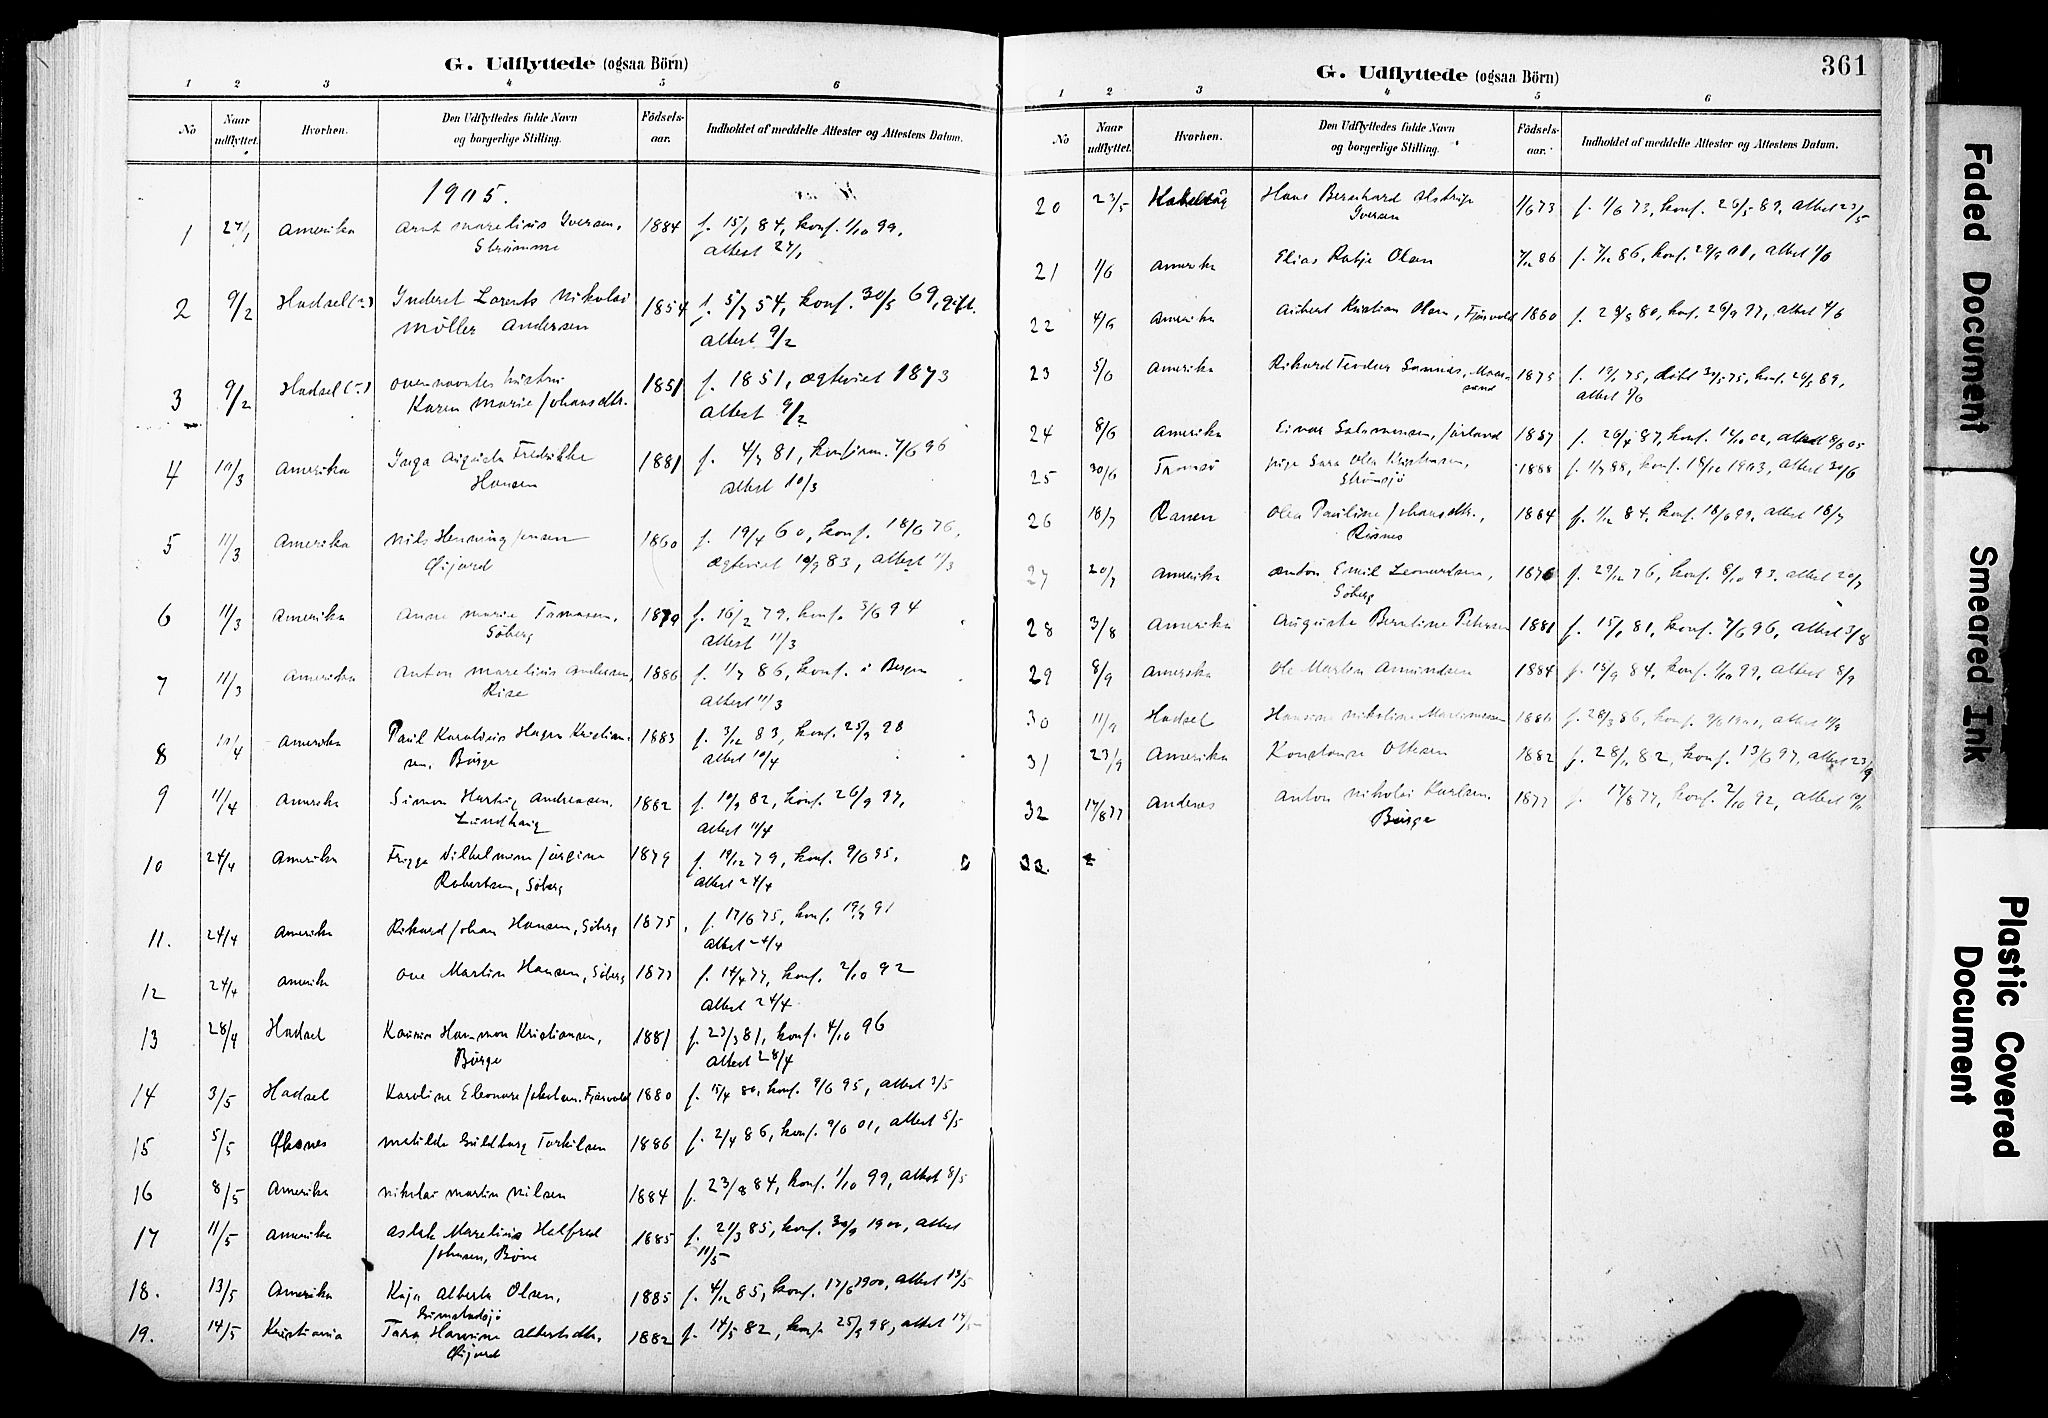 G. Udflyttede (ogsaa Börn)
1 2 3 4 5 6
No
Naar udflyttet.
Hvorhen.
Den Udflyttedes fulde Navn og borgerlige Stilling.
Födsels-aar.
Indholdet af meddelte Attester og Attestens Datum.
1905.
1 27/1 Amerika Arnt Marelius Iversen, 1884 f. 15/1 84, konf. 1/10 99,
Strømme attest 27/1
2 9/2 Hadsel (?) Inderst Lorents Nikolai 1854 f. 5/7 54, konf. 30/5 69, gift.
Möller Andersen attest 9/2
3 9/2 Hadsel (?) ovennævntes hustru 1851 f. 1851, ægteviet 1873
Karen Marie Johansdtr. attest 9/2
4 10/3 Amerika Inga Augusta Fredrikke 1881 f. 4/7 81, konfirm. 7/6 96
Hansen attest 10/3
5 11/3 Amerika Nils Henning Jensen 1860 f. 19/4 60, konf. 18/6 76,
Øijord ægteviet 10/9 83, attest 11/3
6 11/3 Amerika Anne Marie Tomasen, 1879 f. 16/2 79, konf. 3/6 94
Söberg attest 11/3
7 11/3 Amerika Anton Marelius Andersen, 1886 f. 1/7 86, konf. i Bergen
Rise attest 11/3
8 10/4 Amerika Paul Karolius Hagen Kristian- 1883 f. 3/12 83, konf. 25/9 98
sen, Börge attest 10/4
9 11/4 Amerika Simon Hartvig Andreasen, 1882 f. 10/9 82, konf. 26/9 97,
Lundhaug attest 11/4
10 24/4 Amerika Frigga Vilhelmine Jörgine 1879 f. 19/12 79, konf. 9/6 95,
Robertsen, Söberg attest 24/4
11. 24/4 Amerika Rikard Johan Hansen, Söberg 1875 f. 17/6 75, konf. 19/7 91
attest 24/4
12 24/4 Amerika Ove Martin Hansen, Söberg 1877 f. 14/4 77, konf. 2/10 92
attest 24/4
13 28/4 Hadsel Hammon Kristiansen, 1881 f. 23/3 81, konf. 4/10 96
Börge attest 28/4
14 3/5 Hadsel Karoline Eleonore Jakobsen. Fjærvold 1880 f. 15/4 80, konf. 9/6 95, attest 3/5
15 5/5 Øksnes Matilde Guldborg Torkilsen 1886 f. 2/4 86, konf. 9/6 01, attest 5/5
16 8/5 Amerika Nikolai Martin Nilsen 1884 f. 23/8 84, konf. 1/10 99, attest 8/5
17 11/5 Amerika Aslak Marelius Halfred 1885 f. 21/3 85, konf. 30/9 1900, attest
Johnsen, Böve 11/5
18. 13/5 Amerika Kaja Alberta Olsen, 1885 f. 4/12 85, konf. 17/6 1900, attest 13/5
Grimstadsjö
19. 14/5 Kristiania Tora Harvine Albertsdtr., 1882 f. 14/5 82, konf. 25/9 98, attest 14/5
Øijord
361
G. Udflyttede (ogsaa Börn)
1 2 3 4 5 6
No
Naar udflyttet.
Hvorhen.
Den Udflyttedes fulde Navn og borgerlige Stilling.
Födsels-aar.
Indholdet af meddelte Attester og Attestens Datum.
20 23/5 Kabelvåg Hans Bernhard Alstrup 1/6 73 f. 1/6 73, konf. 26/5 89, attest 23/5
Iversen
21 1/6 Amerika Elias Rabje Olsen 7/12 86 f. 7/12 86, konf. 29/9 01, attest 1/6
22 4/6 Amerika Aibert Kristian Olsen, Fjærvold 1880 f. 29/8 80, konf. 26/9 97, attest 4/6
23 5/6 Amerika Rikard Teodor Sannes, 1875 f. 19/1 75, döbt 30/5 75, konf. 26/5 89,
attest 5/6
24 8/6 Amerika Einar Salamonsen, Jörland 1887 f. 26/4 87, konf. 12/10 02, attest 8/6 05
25 30/6 Tromsö pige Sara Olea Kristensen, 1888 f. 1/7 88, konf. 18/10 1903, attest 30/6
Strømsjö
26 18/7 Ranen Olea Pauline Johansdtr., 1884 f. 1/12 84, konf. 18/6 99, attest 18/7
Risnes
27 20/7 Amerika Anton Emil Leonardsen, 1876 f. 29/12 76, konf. 8/10 93, attest 20/7
Söberg
28 3/8 Amerika Augusta Berntine Petersen 1881 f. 15/1 81, konf. 7/6 96, attest 3/8
29 8/9 Amerika Ole Marton Amundsen 1884 f. 15/9 84, konf. 1/10 99, attest 8/9
30 11/9 Hadsel Hansine Nikoline Martinussen 1886 f. 28/3 86, konf. 9/6 1901, attest 11/9
31 23/9 Amerika Konstanse Ottesen 1882 f. 28/1 82, konf. 13/6 97, attest 23/9
32 17/8 77 Andenes Anton Nikolai Karlsen. 1877 f. 17/8 77, konf. 2/10 92, attest 10/11
Börge
33.
Faded Document
Smeared Ink
Plastic Covered
Document